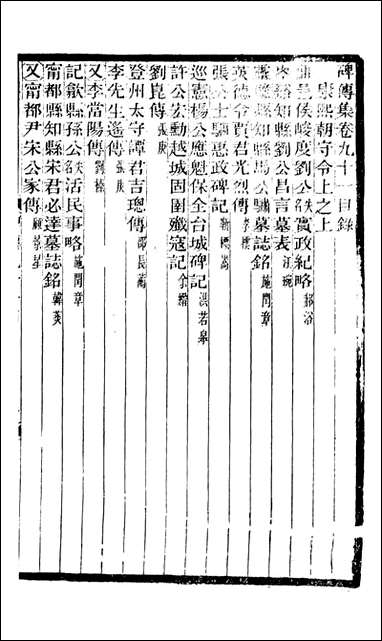 碑傳集卷九十一目錄
康熙朝守令上之上
邑侯峻度劉公 實政紀略
知縣劉公昌言墓表 汪琬
縣知縣馬公驌墓誌銘 施閏章
英德令賈君光烈傳 李
張公士驅惠政碑記
巡憲楊公應魁保全台城碑記 洪若皋
許公宏勳越城固圉殲寇記 余縉
劉崑傳 張庚
登州太守譚君吉璁傳 邵長蘅
李先生遙傳 張庚
又李當陽傳 劉榛
記歙縣孫公 活民事略 施閏章
甯都縣知縣宋君必達墓誌銘 韓菼
又甯都尹宋公家傳 顧景星